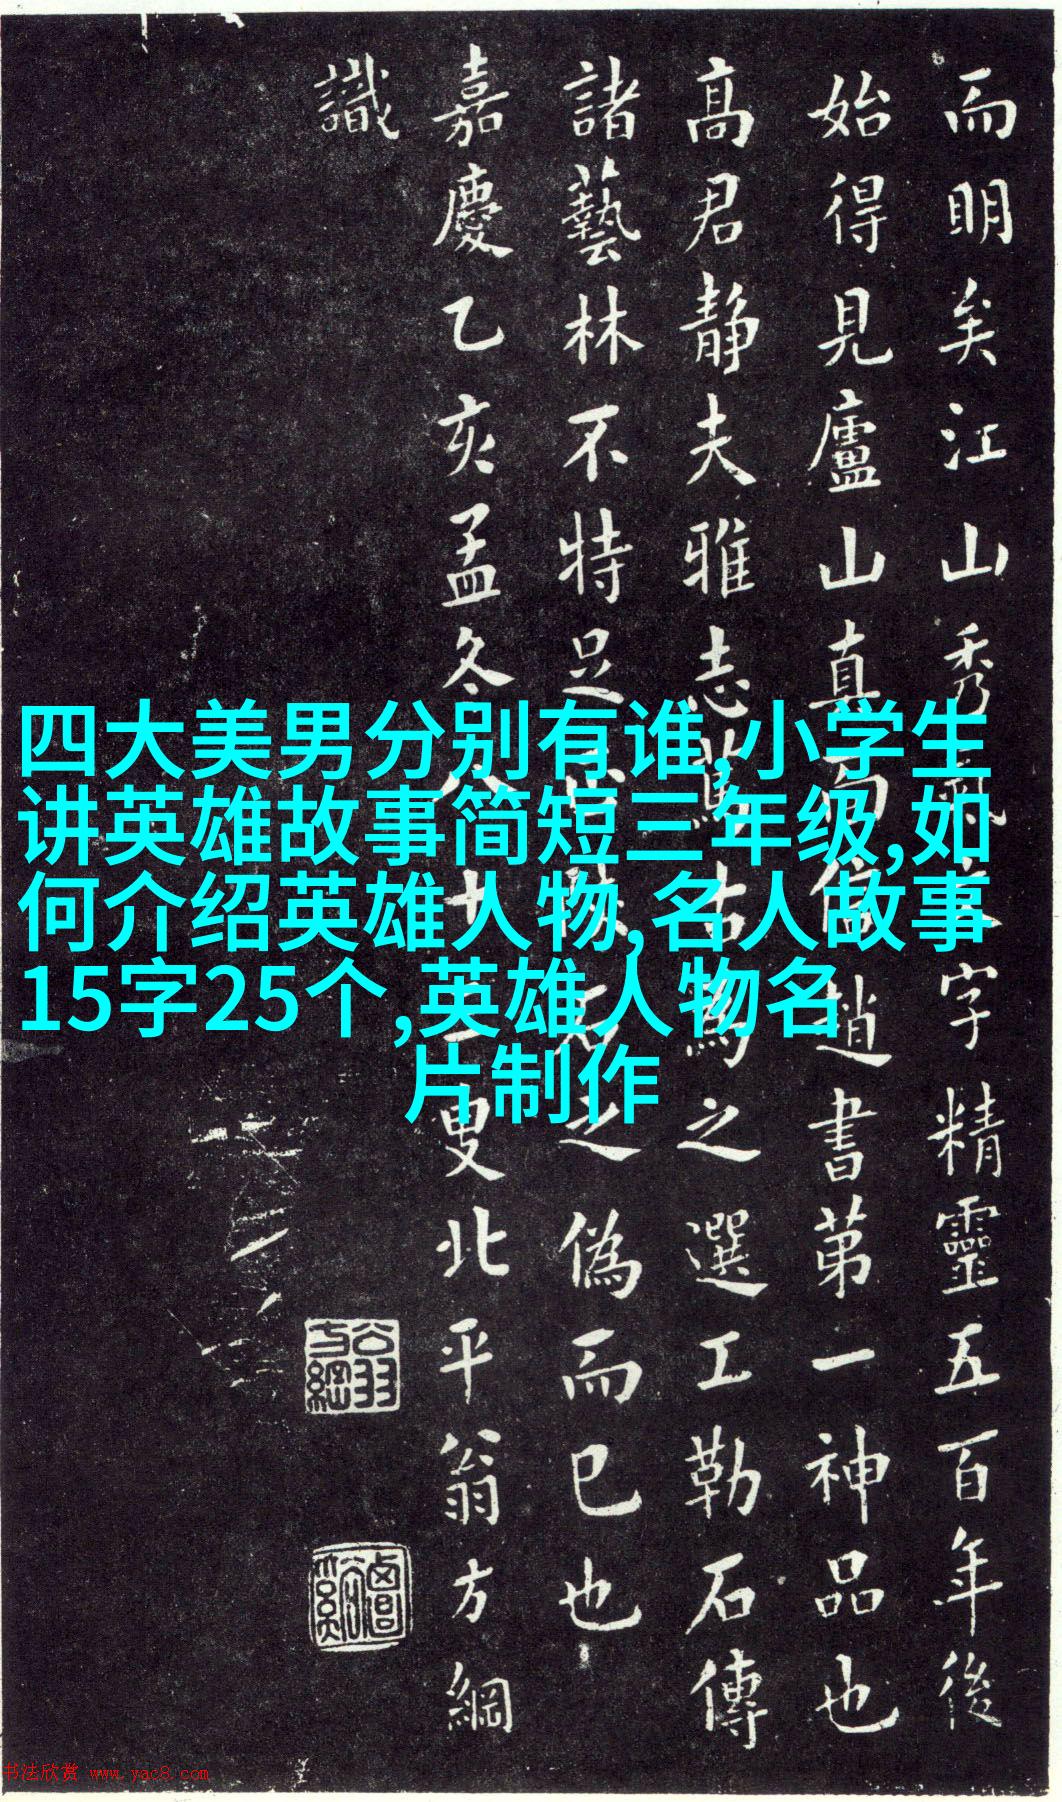 而明矣江山秀氣字精靈五百年後
始得見廬山真面趙書第一神品也
高君静夫雅志篤古為之選工勒石傳
諸藝林不特足之偽而已也
嘉慶乙亥孟冬八十三叟北平翁方綱
識
翁方綱
四大美男分别有谁,小学生
讲英雄故事简短三年级,如
何介绍英雄人物,名人故事
15字25个,英雄人物名
片制作
书法欣赏 www.yac8.com